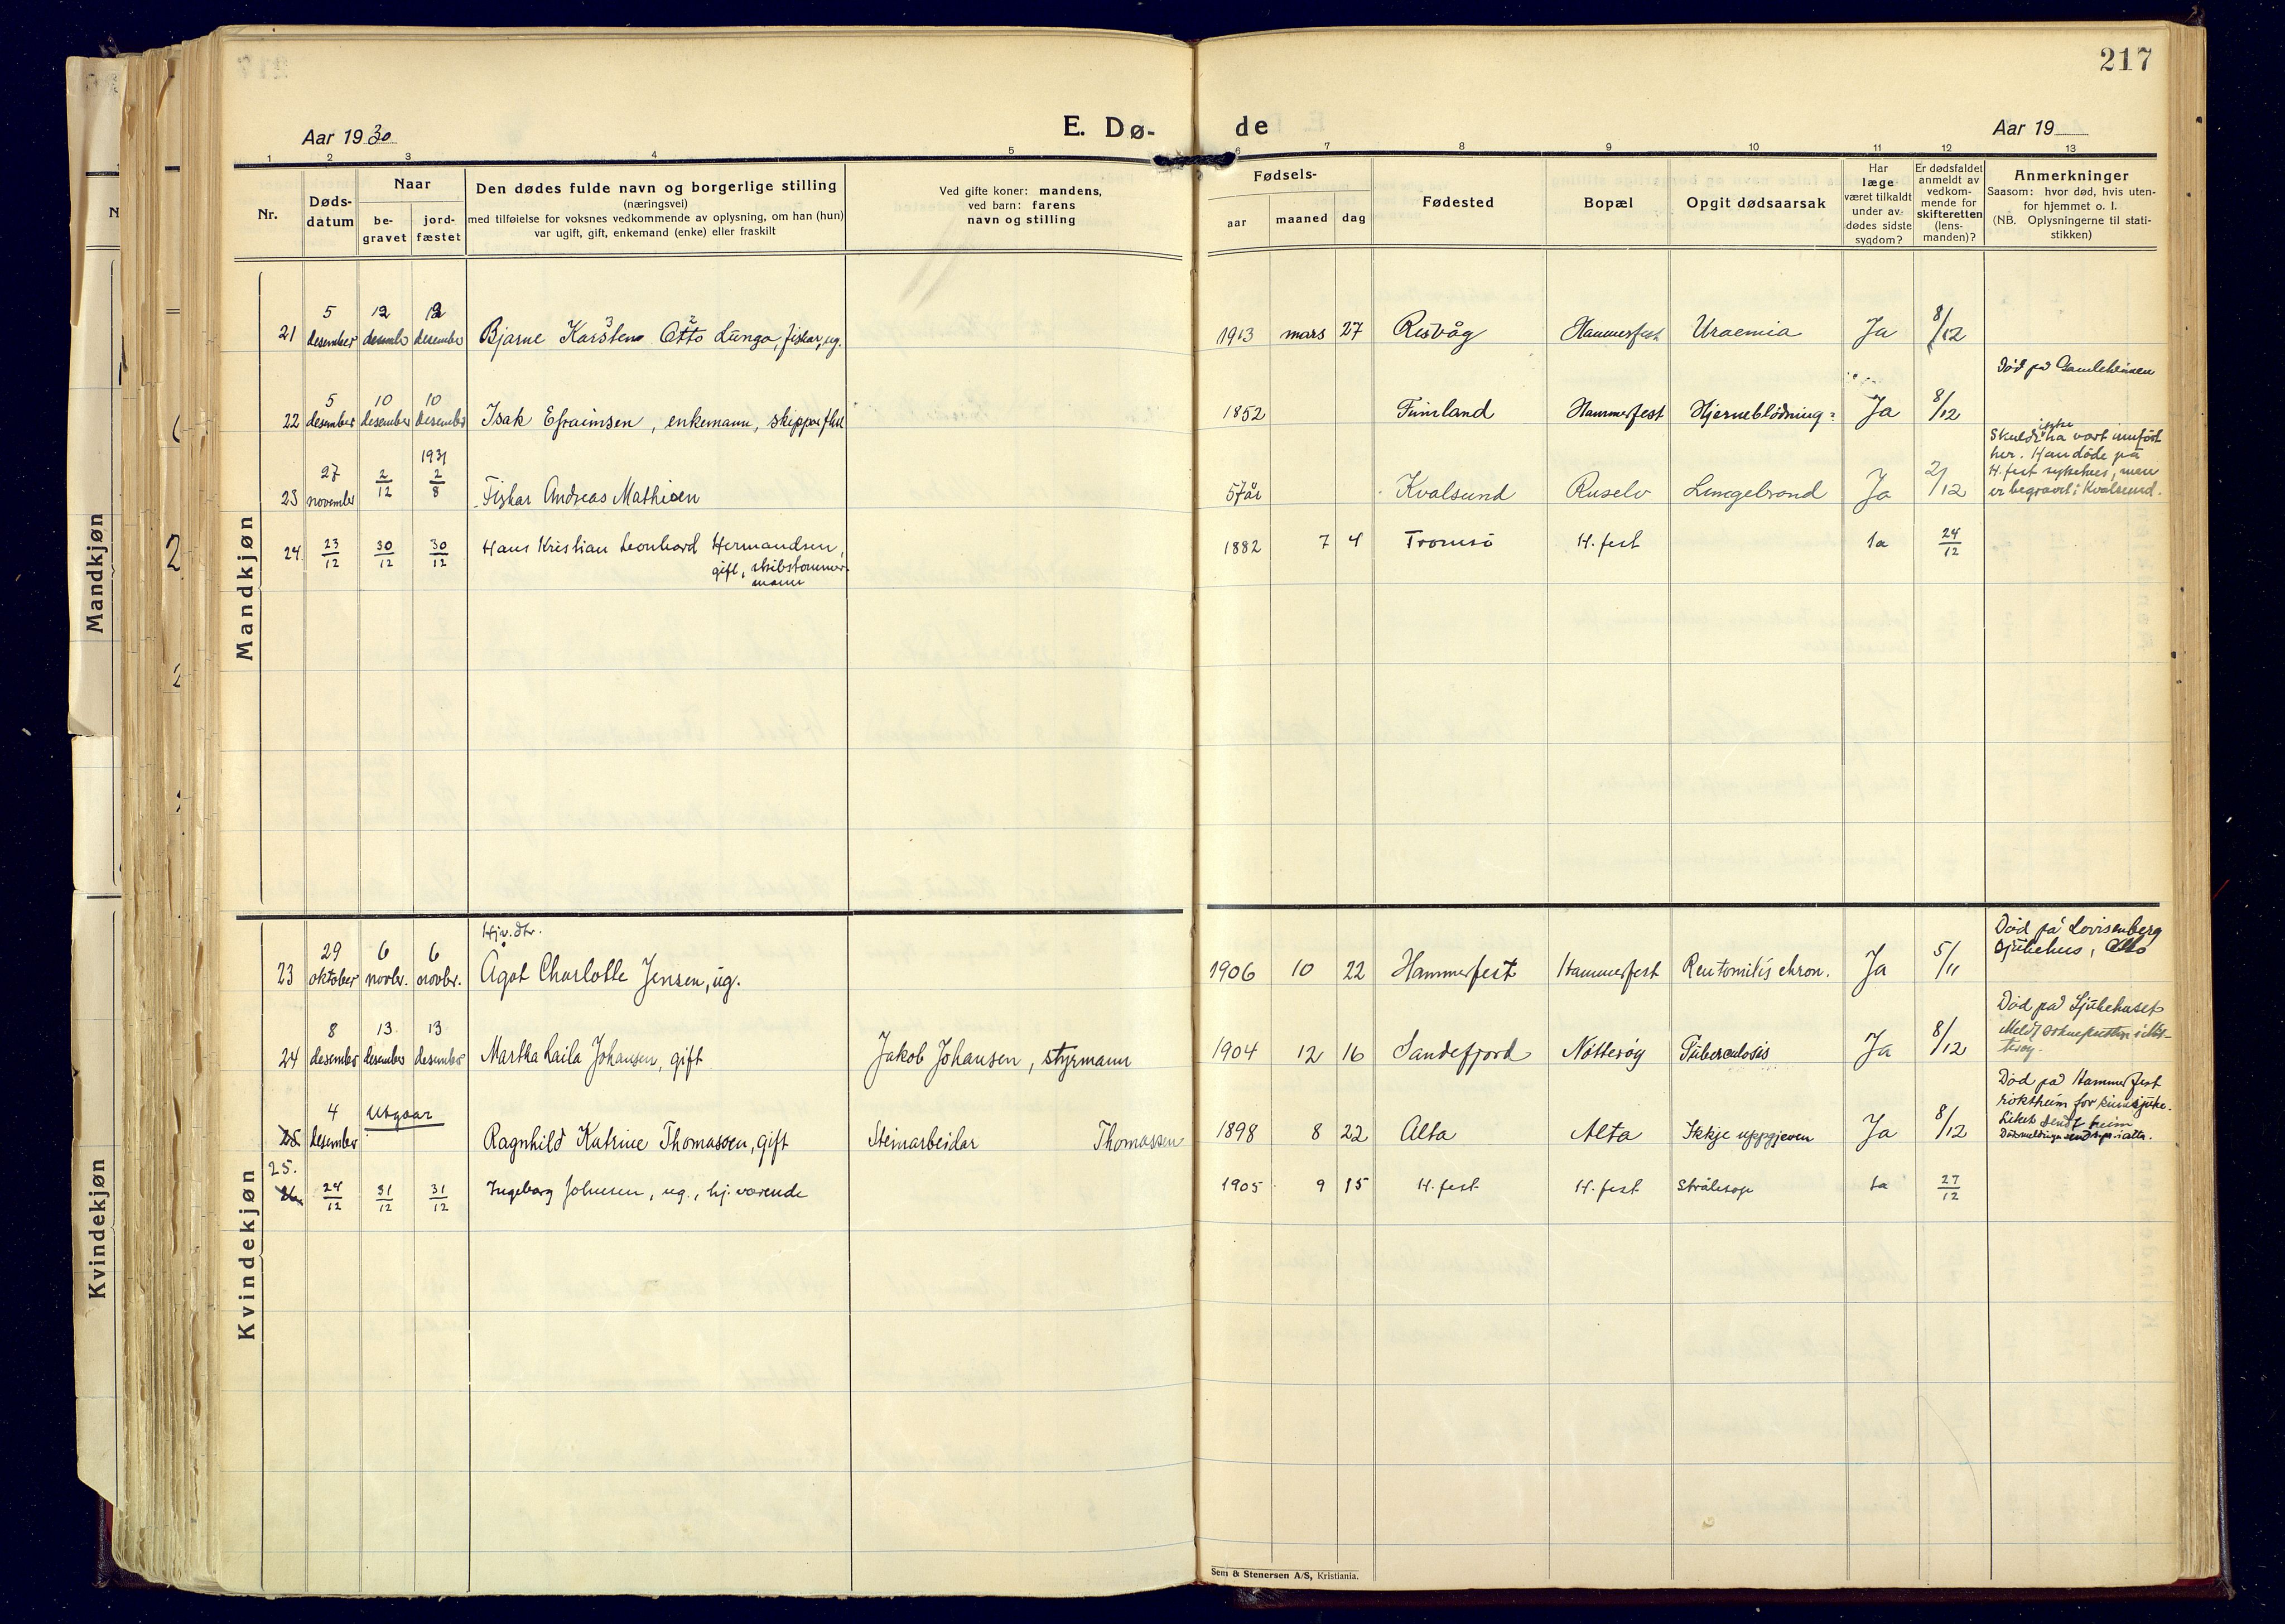 217
Aar 1930
E. Dø-
de
Aar 19
1 2 3 4 5 6 7 8 9 10 11 12 13
Nr.
Døds-
datum
Naar
be-
gravet
jord-
fæstet
Den dødes fulde navn og borgerlige stilling
(næringsvei)
med tilføielse for voksnes vedkommende av oplysning, om han (hun)
var ugift, gift, enkemand (enke) eller fraskilt
Ved gifte koner: mandens,
ved barn: farens
navn og stilling
Fødsels-
aar maaned dag
Fødested
Bopæl
Opgit dødsaarsak
Har
læge
været tilkaldt
under av-
dødes sidste
sygdom?
Er dødsfaldet
anmeldt av
vedkom-
mende for
skifteretten
(lens-
manden)?
Anmerkninger
Saasom: hvor død, hvis uten-
for hjemmet o. l.
(NB. Oplysningerne til stati-
stikken)
Mandkjøn
5 12 12
21 desember desember desember Bjarne Karsten Otto Lunga, fiskar, ug. 1913 mars 27 Risvåg Hammerfest Uraemia Ja 8/12
Död på Gamleheimen
5 10 10
22 desember desember desember Isak Efraimsen, enkemann, skippar 1852 Finnland Hammerfest Hjerneblödning Ja 8/12
ikkje
Skuldi ha vort innfört
her. Han döde på
H.fest sykehus, men
er begravet i Kvalsund.
1931
27 2/12 2/8
23 november Fiskar Andreas Mathisen 57 år Kvalsund Ruselv Lungebrand Ja 2/12
24. 23/12 30/12 30/12 Hans Kristian Leonhard Hermandsen,
gift, skibstømmer-
mann
1882 7 4 Tromsö H. fest Ja 24/12
Kvindekjøn
Hjv. dtr.
29 6 6
23 oktober novbr. novbr. Ågot Charlotte Jensen, ug. 1906 10 22 Hammerfest Hammerfest chron. Ja 5/11
Död på Lovisenberg
Sjukehus, Oslo
8 13 13
24 desember desember desember Martha Laila Johansen, gift Jakob Johansen, styrmann 1904 12 16 Sandefjord Nötteröy Tuberculosis Ja 8/12
Död på Sjukehuset
Meldt Soknepresten i Nöt-
teröy.
4 Utgaar
25 desember Ragnhild Katrine Thomassen, gift Steinarbeidar Thomassen 1898 8 22 Alta Alta Ikkje uppgjeven Ja 8/12
Död på Hammerfest
röktheim for sinnsjuke.
Liket sendt heim
Dödsmeldinga sendt spr. i Alta.
25.
26. 24/12 31/12 31/12 Ingeborg Johnsen, ug., hj. værende 1905 9 15 H. fest H. fest Strålesop Ja 27/12
Sem & Stenersen A/S, Kristiania.
Mandkjøn
Kvindekjøn